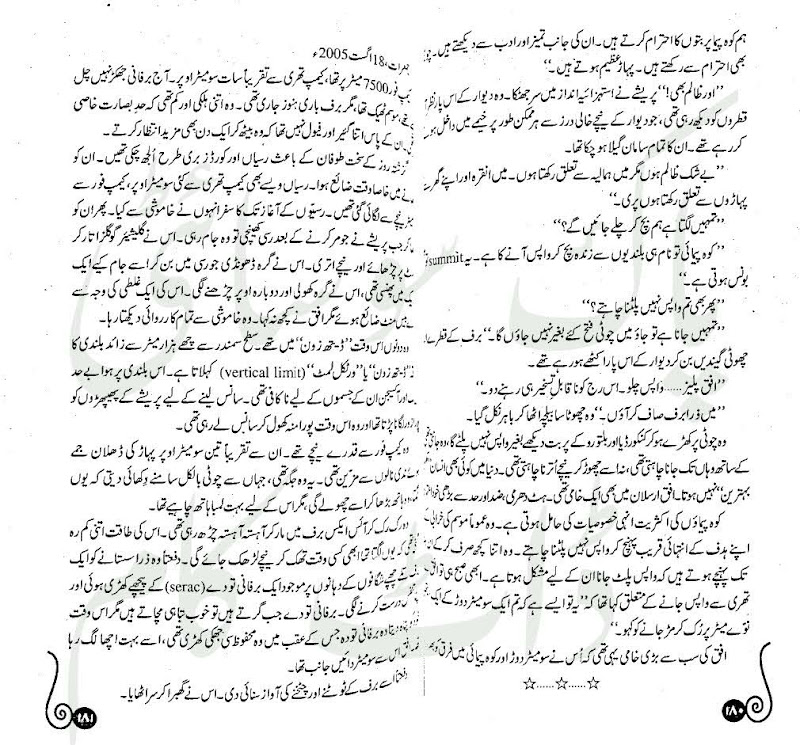 ہم کوہ پیما پربتوں کا احترام کرتے ہیں۔ ان کی جانب تمیز اور ادب سے دیکھتے ہیں۔
بھی احترام سے رکھتے ہیں۔ پہاڑ عظیم ہوتے ہیں۔‘‘
’’اور ظالم بھی!‘‘ پریشے نے استہزائیہ انداز میں سر جھٹکا۔ وہ دیوار کے اس پار نظر
قطروں کو دیکھ رہی تھی، جو دیوار کے نیچے خالی درز سے ہر ممکن طور پر خیمے میں داخل ہو
کر رہے تھے۔ ان کا تمام سامان گیلا ہو چکا تھا۔
’’بے شک ظالم ہوں مگر میں ہمالیہ سے تعلق رکھتا ہوں۔ میں انقرہ اور اپنے گھر
پہاڑوں سے تعلق رکھتا ہوں پری۔‘‘
’’تمہیں لگتا ہے ہم بچ کر چلے جائیں گے؟‘‘
’’کوہ پیمائی تو نام ہی بلندیوں سے زندہ بچ کر واپس آنے کا ہے۔ یہ summit
بونس ہوتی ہے۔‘‘
’’پھر بھی تم واپس نہیں پلٹنا چاہتے؟‘‘
’’تمہیں جانا ہے تو جاؤ میں چوٹی فتح کئے بغیر نہیں جاؤں گا۔‘‘ برف کے قطرے
چھوٹی گیندیں بن کر دیوار کے اس پار اکٹھے ہو رہے تھے۔
’’افق پلیز...... واپس چلو۔ اس رج کو ناقابل تسخیر ہی رہنے دو۔‘‘
’’میں ذرا برف صاف کر آؤں۔‘‘ وہ چھوٹا سا بیلچہ اٹھا کر باہر نکل گیا۔
وہ چوٹی پر کھڑے ہو کر کنکورڈیا اور بلتورو کے پربت دیکھے بغیر واپس نہیں پلٹے گا، وہ جانتی
کے ساتھ وہاں تک جانا چاہتی تھی، نہ اسے چھوڑ کر نیچے اُترنا چاہتی تھی۔ دنیا میں کوئی بھی انسان
بہترین‘‘ نہیں ہوتا۔ افق ارسلان میں بھی ایک خامی تھی۔ ہٹ دھرمی، ضد اور حد سے بڑھی
کوہ پیماؤں کی اکثریت انہی خصوصیات کی حامل ہوتی ہے۔ وہ عموماً موسم کی خرابی
اپنے ہدف کے انتہائی قریب پہنچ کر واپس نہیں پلٹنا چاہتے۔ وہ اتنا کچھ صرف کر کے
تک پہنچے ہوتے ہیں کہ واپس پلٹ جانا ان کے لیے مشکل ہوتا ہے۔ ابھی صبح ہی تو افق
تھری سے واپس جانے کے متعلق کہا تھا کہ ’’یہ تو ایسے ہے کہ تم ایک سو میٹر دوڑ کے ایک
نوے میٹر پر رُک کر مڑ جانے کو کہو۔‘‘
افق کی سب سے بڑی خامی یہی تھی کہ اُس نے سو میٹر دوڑ اور کوہ پیمائی میں فرق
☆......☆......☆
۲۸۰
جمعرات، 18 اگست 2005ء
کیمپ فور 7500 میٹر پر تھا، کیمپ تھری سے تقریباً سات سو میٹر اوپر۔ آج برفانی جھکڑ نہیں چل
رہے تھے، موسم ٹھیک تھا، مگر برف باری ہنوز جاری تھی۔ وہ اتنی ہلکی اور کم تھی کہ حد بصارت خاصی
ان کے پاس اتنا گیئر اور فیول نہیں تھا کہ وہ بیٹھ کر ایک دن بھی مزید انتظار کرتے۔
گزشتہ روز کے سخت طوفان کے باعث رسیاں اور کورڈز بری طرح اُلجھ چکی تھیں۔ ان کو
میں خاصا وقت ضائع ہوا۔ رسیاں ویسے بھی کیمپ تھری سے کئی سو میٹر اوپر، کیمپ فور سے
نیچے سے لگائی گئی تھیں۔ رسیوں کے آغاز تک کا سفر انہوں نے خاموشی سے کیا۔ پھر ان کو
جب پریشے نے جومر کرنے کے بعد رسی کھینچی تو وہ جام رہی۔ اس نے گلیشیئر گوگلز اتار کر
پر چڑھائے اور نیچے اتری۔ اس نے گرہ ڈھونڈی جو رسی میں بن کر اسے جام کیے ایک
میں پھنسی تھی، اس نے گرہ کھولی اور دوبارہ اوپر چڑھنے لگی۔ اس کی ایک غلطی کی وجہ سے
منٹ ضائع ہوئے مگر افق نے کچھ نہ کہا۔ وہ خاموشی سے تمام کارروائی دیکھتا رہا۔
وہ دونوں اس وقت ’’ڈیتھ زون‘‘ میں تھے۔ سطح سمندر سے چھے ہزار میٹر سے زائد بلندی کا
’’ڈیتھ زون‘‘ یا ’’ورٹیکل لمٹ‘‘ (vertical limit) کہلاتا ہے۔ اس بلندی پر ہوا بے حد
اور آکسیجن ان کے جسموں کے لیے ناکافی تھی۔ سانس لینے کے لیے پریشے کے پھیپھڑوں کو
زور لگانا پڑتا تھا اور وہ اس وقت پورا منہ کھول کر سانس لے رہی تھی۔
وہ کیمپ فور سے قدرے نیچے تھے۔ ان سے تقریباً تین سو میٹر اوپر پہاڑ کی ڈھلان جمے
نالوں سے مزین تھی۔ یہ وہ جگہ تھی، جہاں سے چوٹی بالکل سامنے دِکھائی دیتی کہ یوں
وہ ہاتھ بڑھا کر اسے چھو لے گی، مگر اس کے لیے بہت لمبا ہاتھ چاہیے تھا۔
وہ رک رک کر آئس ایکس برف میں مار کر آہستہ آہستہ چڑھ رہی تھی۔ اس کی طاقت اتنی کم رہ
کہ یوں لگتا تھا ابھی کسی وقت تھک کر نیچے لڑھک جائے گی۔ دفعتاً وہ ذرا ستانے کو ایک
چھپے شگافوں کے دہانوں پر موجود ایک برفانی تودے (serac) کے پیچھے کھڑی ہوئی اور
درست کرنے لگی۔ برفانی تودے جب گرتے ہیں تو خوب تباہی مچاتے ہیں مگر اس وقت
وہ برفانی تودہ جس کے عقب میں وہ محفوظ سی جھکی کھڑی تھی، اسے بہت اچھا لگ رہا
افق اس سے سو میٹر دائیں جانب تھا۔
دفعتاً اسے برف کے ٹوٹنے اور چٹخنے کی آواز سنائی دی۔ اس نے گھبرا کر سر اٹھایا۔
۲۸۱